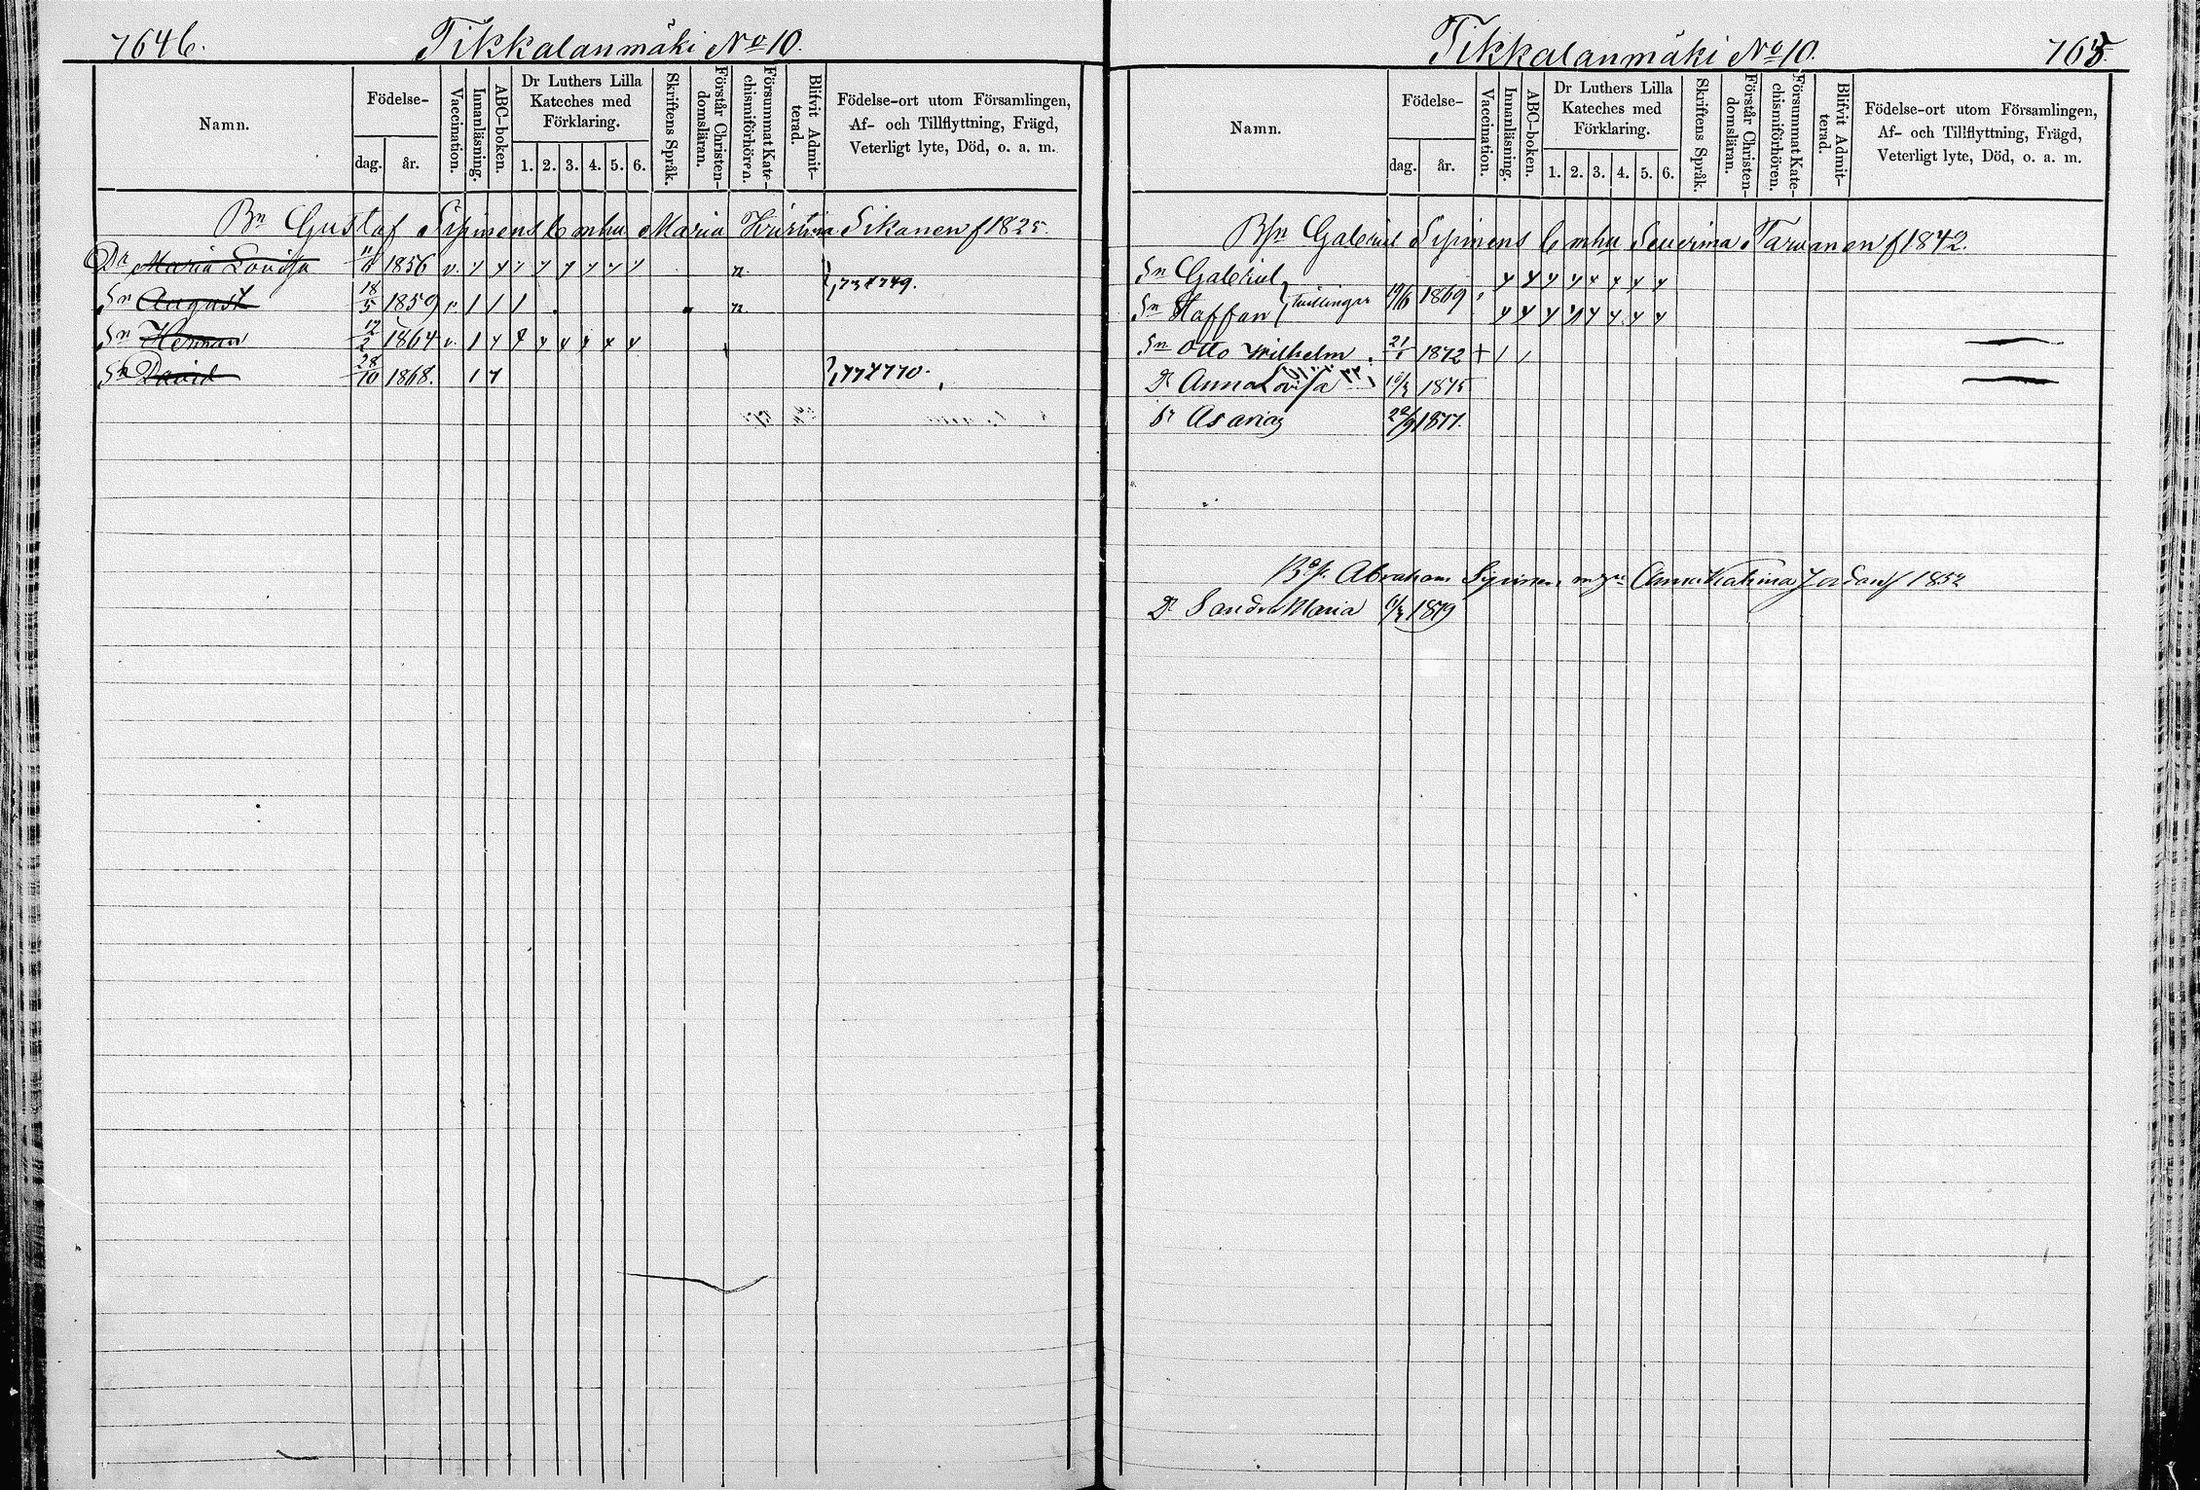 764b.
Tikkalanmäki No 10.
Namn.
Födelse-
dag. år.
Vaccination.
Innanläsning.
ABC-boken.
Dr Luthers Lilla Kateches med Förklaring.
1. 2. 3. 4. 5. 6.
Skriftens Språk.
Förstår Christen-domsläran.
Försummat Kate-chismiförhören.
Blifvit Admit-terad.
Födelse-ort utom Församlingen,
Af- och Tillflyttning, Frägd,
Veterligt lyte, Död, o. a. m.
Bn Gustaf Sipinens Enka Maria Kristina Sikanen f 1825.
Dr Maria Lovisa 1856 v. n.
Sn August 18/5 1859 v. n.
Sn Herman 12/2 1864 v.
Sn David 28/10 1868.
Tikkalanmäki No 10.
765.
Namn.
Födelse-
dag. år.
Vaccination.
Innanläsning.
ABC-boken.
Dr Luthers Lilla Kateches med Förklaring.
1. 2. 3. 4. 5. 6.
Skriftens Språk.
Förstår Christen-domsläran.
Försummat Kate-chismiförhören.
Blifvit Admit-terad.
Födelse-ort utom Församlingen,
Af- och Tillflyttning, Frägd,
Veterligt lyte, Död, o. a. m.
Gabriel Sipinens Severina Tarvanen f 1842.
Sn Gabriel
Sn Staffan tvillingar 19/6 1869
Sn Otto Wilhelm 21/1 1872
Dr Anna Lovisa 1875
Sn Asarias 1877.
Abraham Sipinen Anna Katrina Jordan f 1852
Dr Sandra Maria 1879